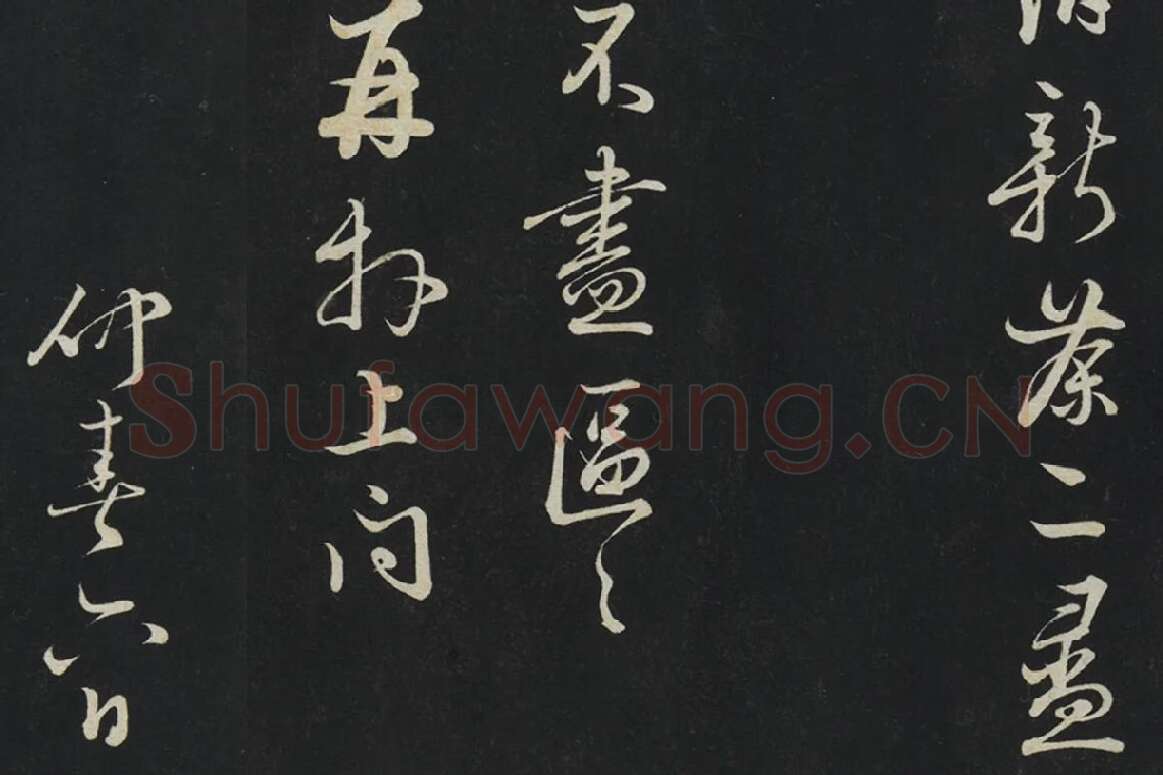 新茶二
不盡區々
再拜上問
仲春六日
Shufawang.CN